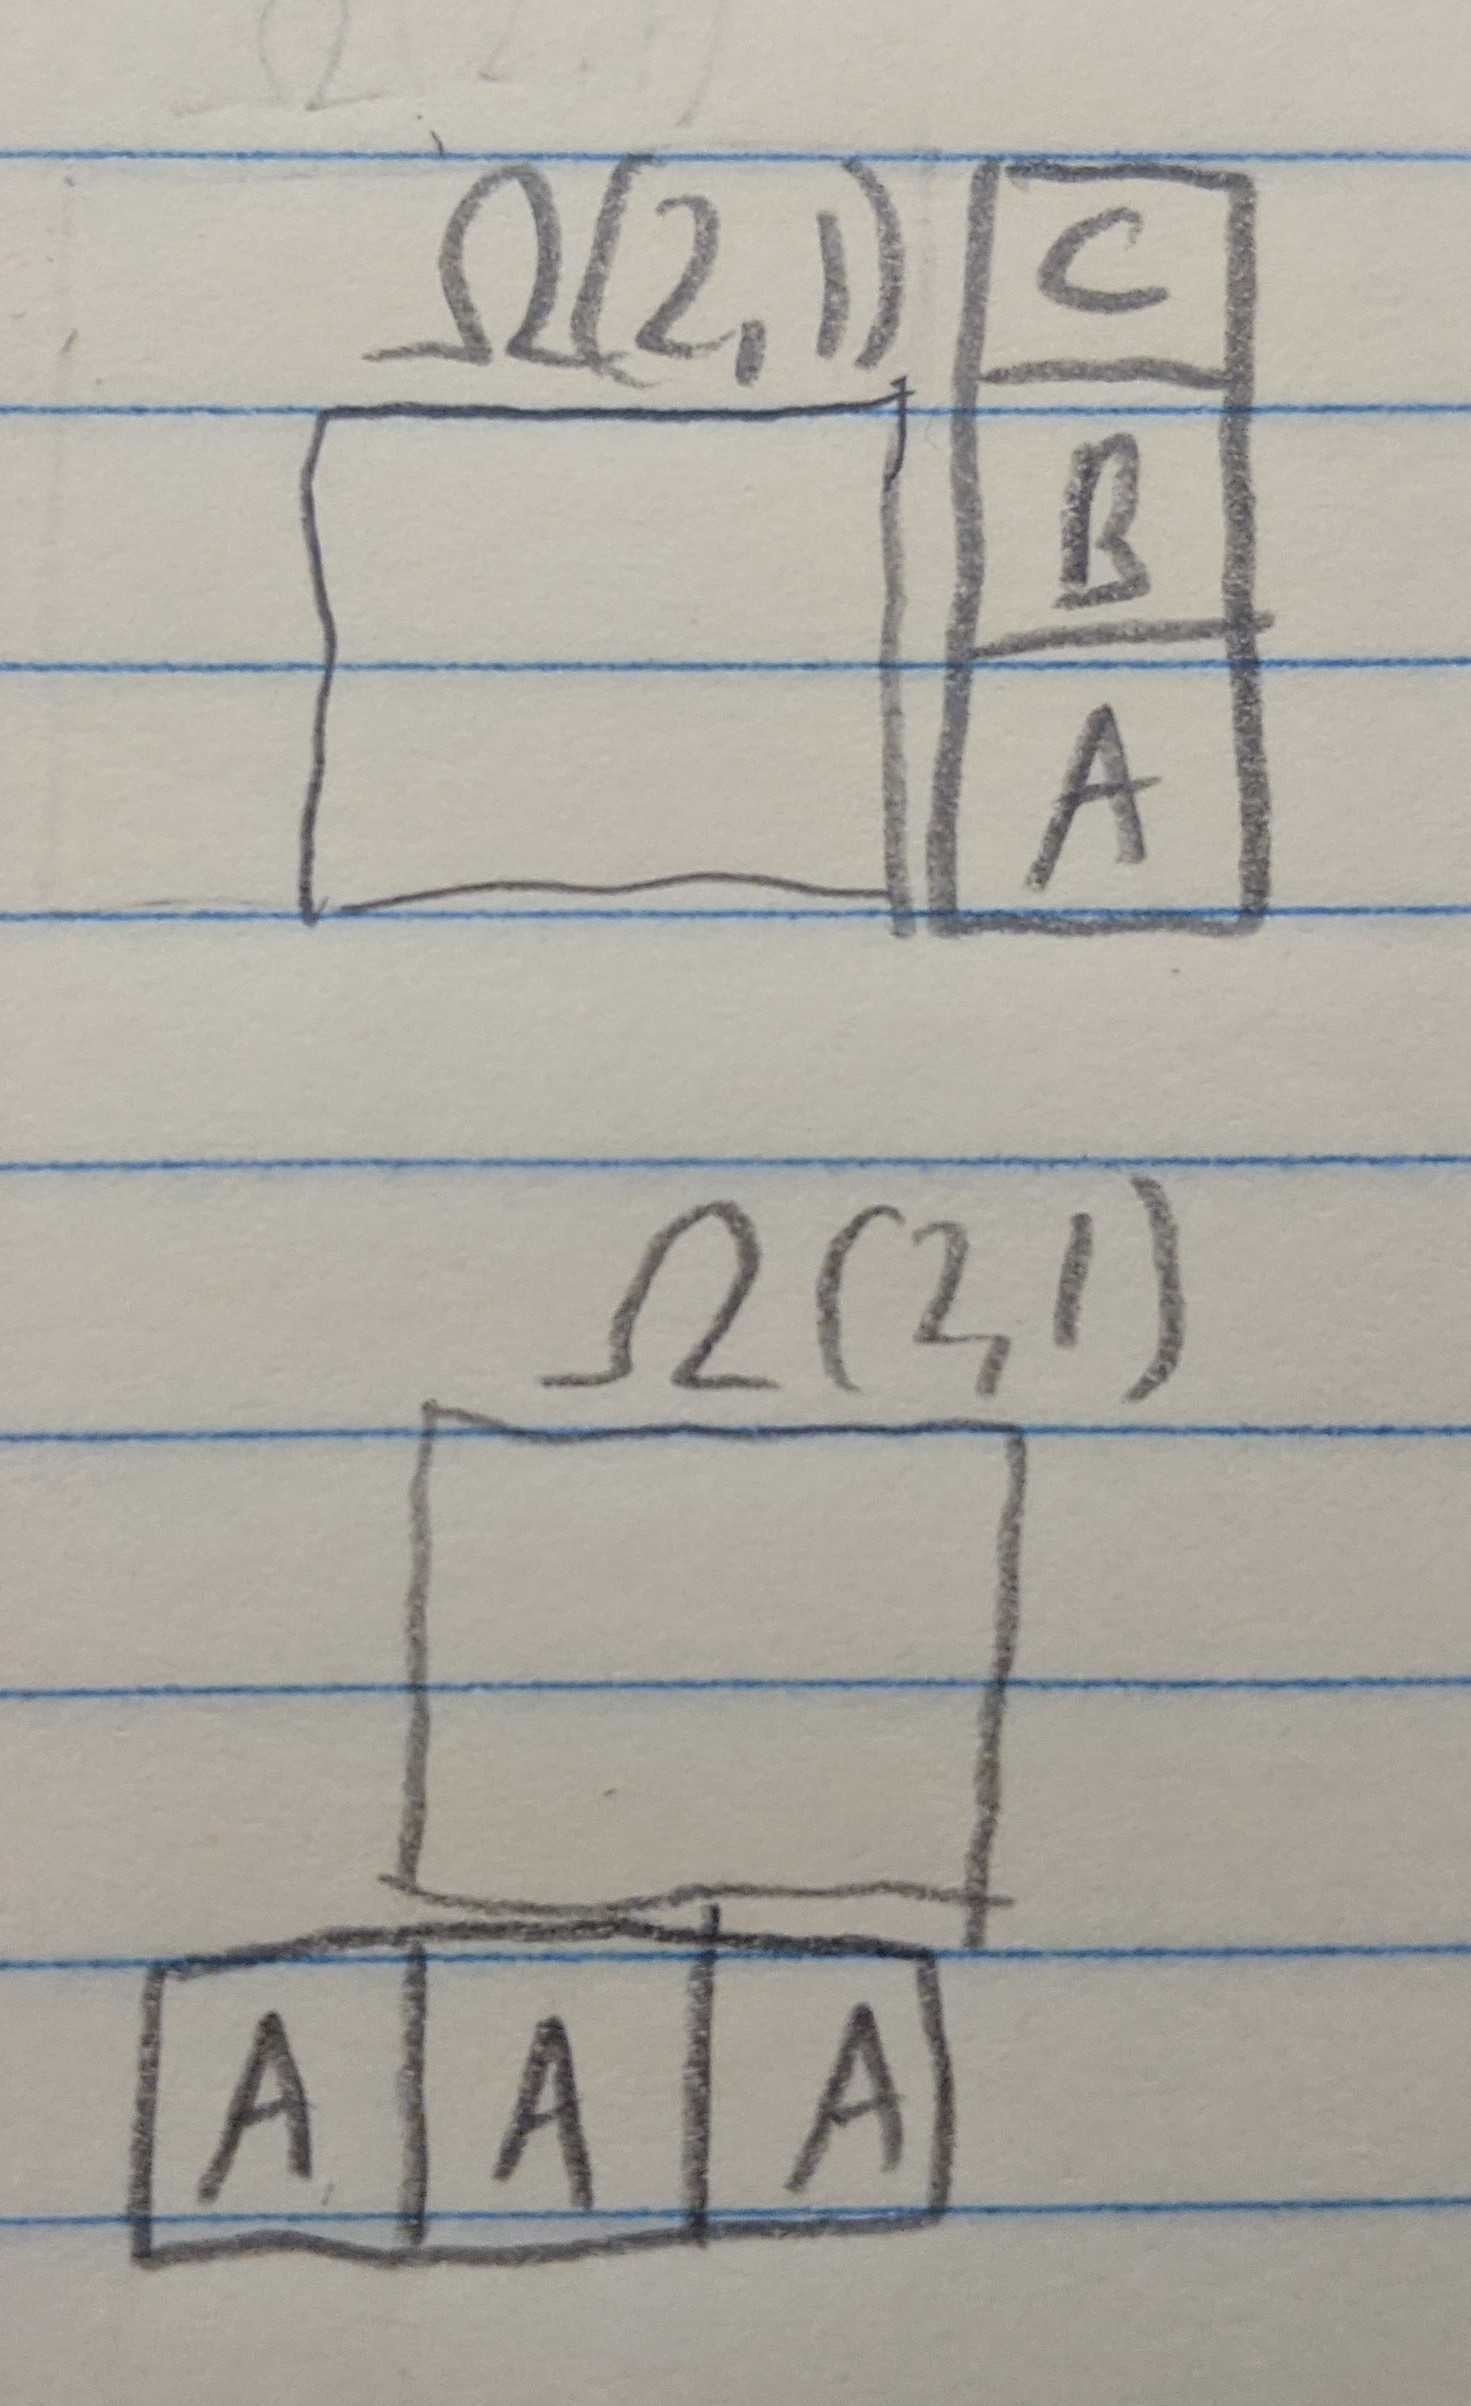 Ω(2,1)
C
B
A
Ω(2,1)
A A A